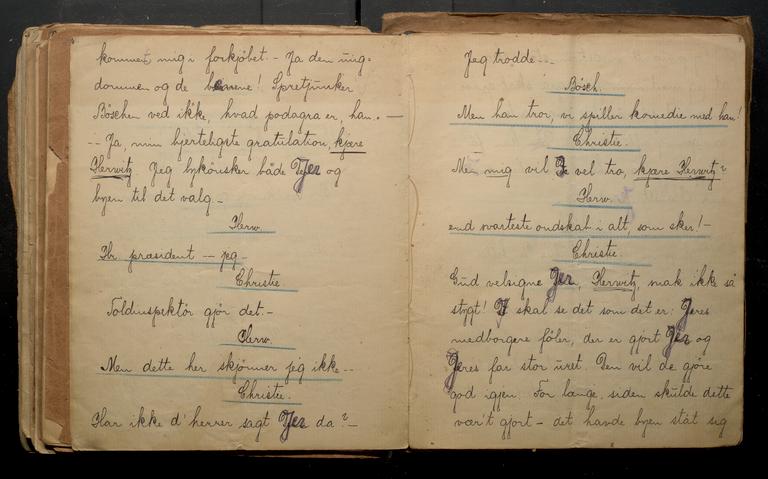 kommet mig i forkjøbet. – Ja den ung=
dommen og de benene! Spretjunker
Böschen ved ikke, hvad podagra er, han. –
– Ja, min hjerteligste gratulation, kjære
Herwitz Jeg lykønsker både Jer og
byen til det valg. –
Herw.
Hr. præsident – jeg –
Christie
Toldinspektör gjör det. –
Herw.
Men dette her skjönner jeg ikke. –
Christie.
Har ikke d' herrer sagt Jer da? –
Jeg trodde. –
Bösch.
Men han tror, vi spiller komedie med ham!
Christie.
Men mig vil I vel tro, kjære Herwitz?
Herw.
end svarteste ondskab i alt, som sker! –
Christie.
Gud velsigne Jer, Herwitz, snak ikke så
stygt! I skal se det som det er: Jeres
medborgere föler, der er gjort Jer og
Jeres far stor uret. Den vil de gjöre
god igjen. For længe siden skulde dette
vær't gjort – det havde byen ståt sig